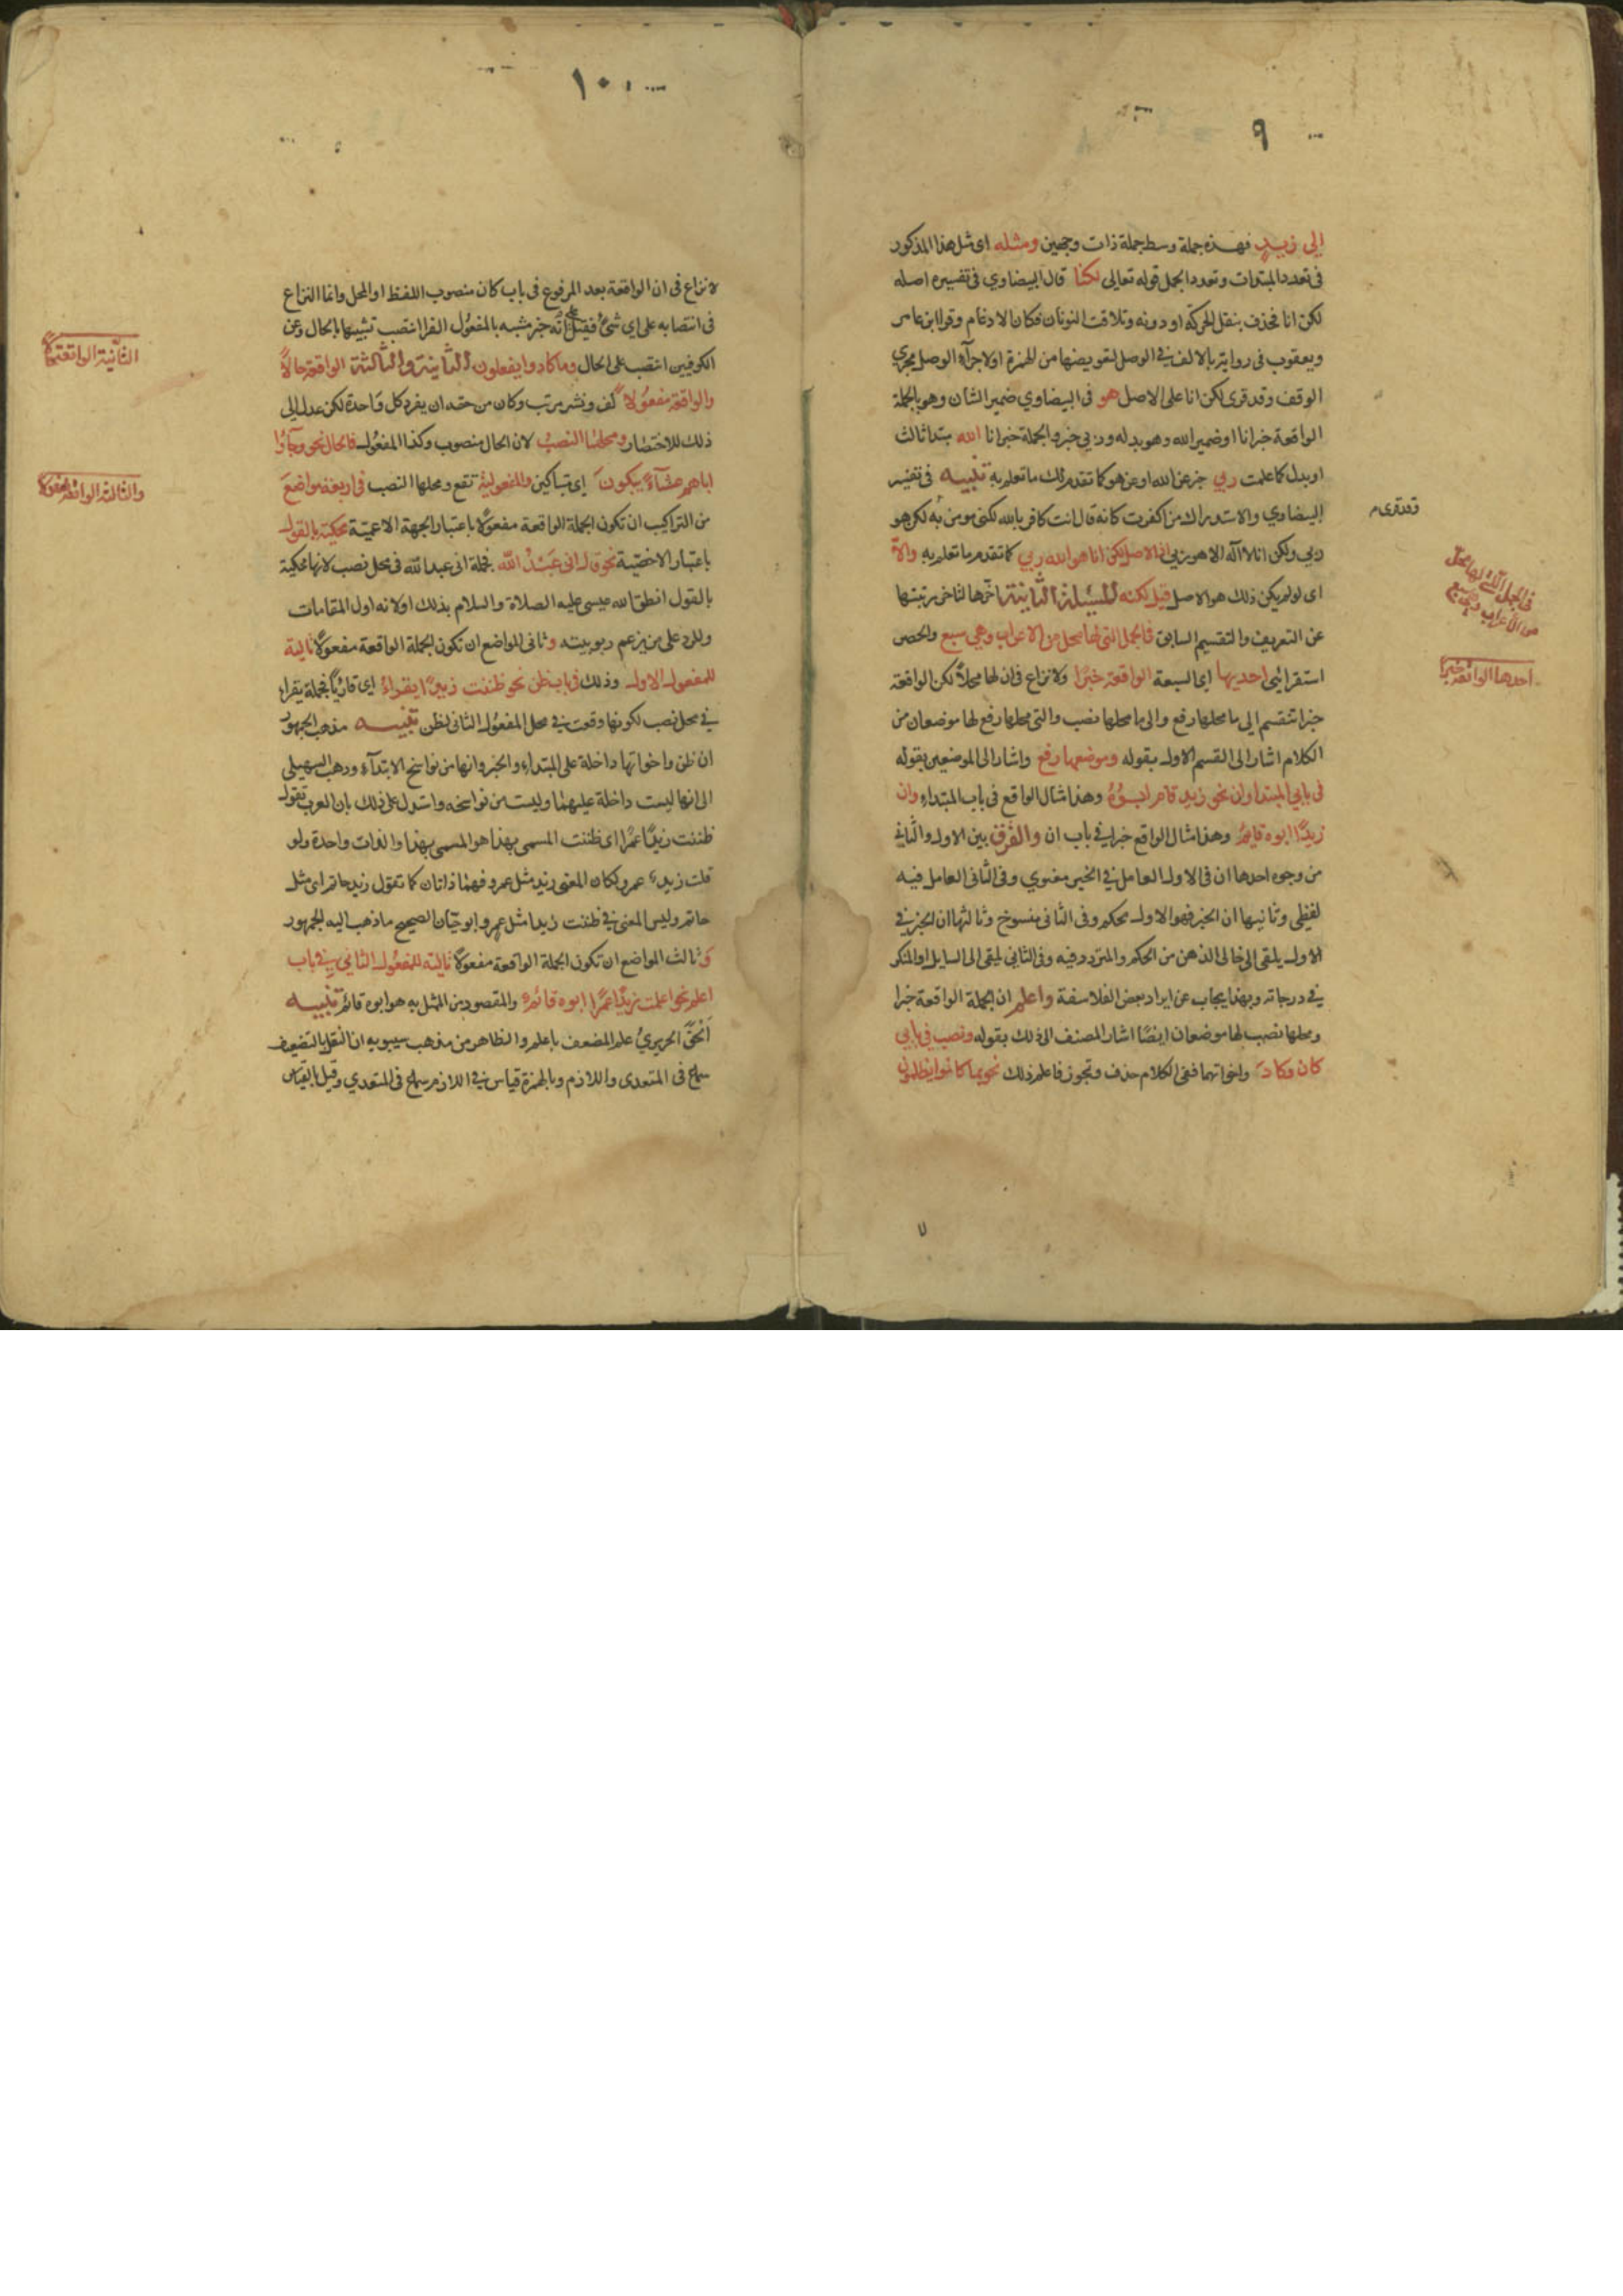 ٩
إلى زيدٍ فهذه جملة وسط جملة ذات وجهين ومثله اى مثل هذا المذكور
فى تعدد المبتدات وتعدد الجمل قوله تعالى لكنا قال البيضاوي فى تفسيره اصله
لكن انا فحذف بنقل الحركة او دونه وتلاقت النونان فكان الادغام وقرا ابن عامر
ويعقوب فى رواية بالالف في الوصل لتعويضها من الهمزة اولاجرآء الوصل مجرى
الوقف وقد قرى لكن انا على الاصل هو فى البيضاوي ضمير الشان وهو بالجملة
الواقعة خبر انا او ضمير الله وهو بدله وربي خبر والجملة خبر انا الله مبتدا ثالث
او بدل كما علمت ربي خبر عن الله او عن هو كما تقدم لك ما تعلم به تنبيه فى تفسير
البيضاوي والاستدراك من اكفرت كانه قال انت كافر بالله لكنى مومن به لكن هو
ربي ولكن انا لا اله الا هو ربي اذ الاصل لكن انا هو الله ربي كما تقدم ما تعلم به والا
اى لو لم يكن ذلك هو الاصل قيل لكنه المسئلة الثانية اخرها لتاخر رتبتها
عن التعريف والتقسيم السابق فالجمل التى لها محل من الاعراب وهي سبع والحصر
استقرائى احديها اى السبعة الواقعة خبرًا ولا نزاع فى ان لها محلاً لكن الواقعة
خبرا تنقسم الى ما محلها رفع والى ما محلها نصب والتى محلها رفع لها موضعان من
الكلام اشار الى القسم الاول بقوله وموضعها رفع واشار الى الموضعين بقوله
فى بابي المبتدا وان نحو زيد قام ابوهُ وهذا مثال الواقع فى باب المبتداء وان
زيدًا ابوه قايمٌ وهذا مثال الواقع خبرا في باب ان والفرق بين الاول والثاني
من وجوه احدها ان فى الاول العامل في الخبر معنوي وفى الثانى العامل فيه
لفظي وثانيها ان الخبر فهو الاول محكم وفى الثانى منسوخ وثالثها ان الخبر في
الاول يلقى الى خالى الذهن من الحكم والمتردد فيه وفى الثاني يلقى الى السايل او المنكر
في درجاته وبهذا يجاب عن ايراد بعض الفلاسفة واعلم ان الجملة الواقعة خبرا
ومحلها نصب لها موضعان ايضًا اشار المصنف الى ذلك بقوله ونصب في بابي
كان وكادَ واخواتهما ففى الكلام حذف وتجوز فاعلم ذلك نحو بما كانوا يظلمون
وقد قرى م
فى الجمل التى لها محل
من الاعراب وهي سبع
احدها الواقعة خبرا
١٠
لا نزاع فى ان الواقعة بعد المرفوع فى باب كان منصوب اللفظ او المحل وانما النزاع
فى انتصابه على اي شئ فقيل على انه خبر مشبه بالمفعول الفرا انتصب تشبيها بالحال وعن
الكوفيين انتصب على الحال وما كادوا يفعلون الثانية والثالثة الواقعة حالاً
والواقعة مفعولاً لف ونشر مرتب وكان من حقه ان يفرد كل واحدة لكن عدل الى
ذلك للاختصار ومحلهما النصب لان الحال منصوب وكذا المفعول فالحال نحو وجآؤا
اباهم عشآءً يبكونَ اى متباكين والمفعولية تقع ومحلها النصب فى اربعة مواضع
من التراكيب ان تكون الجملة الواقعة مفعولاً باعتبار الجهة الاعمية محكية بالقول
باعتبار الاخصية نحو قال انى عَبْدُ الله فجملة انى عبد الله فى محل نصب لانها محكية
بالقول انطق الله عيسى عليه الصلاة والسلام بذلك اولا لانه اول المقامات
وللرد على من يزعم ربوبيته وثانى المواضع ان تكون الجملة الواقعة مفعولاً تالية
للمفعول الاول وذلك فى باب ظن نحو ظننت زيدًا يقراءُ اى قارئاً فجملة يقراء
في محل نصب لكونها وقعت في محل المفعول الثانى لظن تنبيه مذهب الجمهور
ان ظن واخواتها داخلة على المبتداء والخبر وانها من نواسخ الابتداء وذهب السهيلى
الى انها ليست داخلة عليهما وليست من نواسخه واستدل على ذلك بان العرب تقول
ظننت زيدًا عمرًا اى ظننت المسمى بهذا هو المسمى بهذا والذات واحدة ولو
قلت زيد عمرو لكان المعنى زيد مثل عمرو فهما ذاتان كما تقول زيد حاتم اى مثل
حاتم وليس المعنى في ظننت زيدا مثل عمرو ابو حيّان الصحيح ما ذهب اليه الجمهور
وثالث المواضع ان تكون الجملة الواقعة مفعولاً تالية للمفعول الثاني في باب
اعلم نحو اعلمت زيدًا عمرًا ابوه قائم والمقصود من المثل به هو ابوه قائم تنبيه
اَلحَقَ الحريريُ علم المضعف باعلم والظاهر من مذهب سيبويه ان النقل بالتضعيف
سماع فى المتعدى واللازم وبالهمزة قياس في اللازم سماع فى المتعدي وقيل بالقياس
الثانية الواقعة حالا
والثالثة الواقعة مفعولا